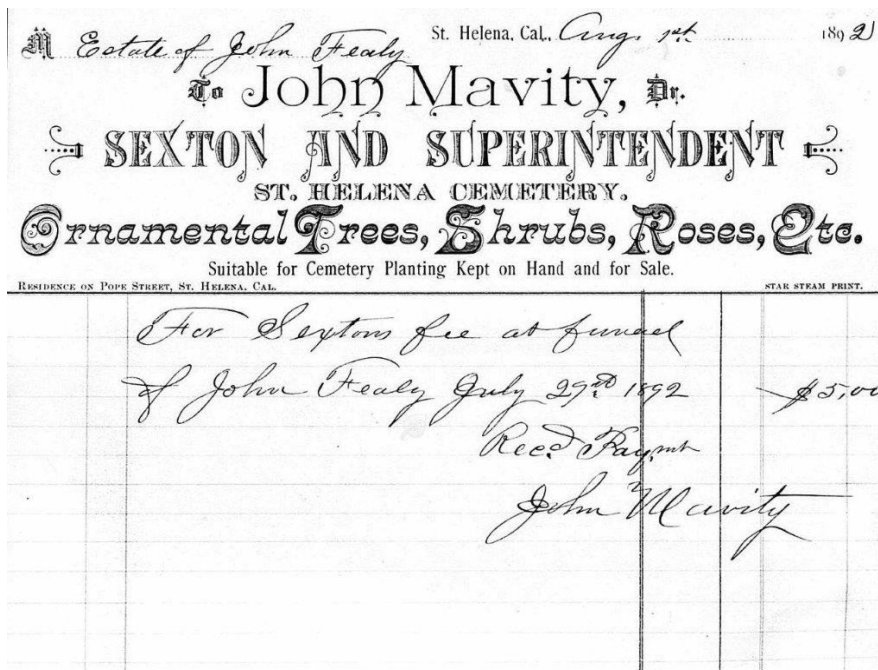 St. Helena, Cal., Aug. 1st 1892
M Estate of John Fealy
To John Mavity, Dr.
SEXTON AND SUPERINTENDENT
ST. HELENA CEMETERY.
Ornamental Trees, Shrubs, Roses, Etc.
Suitable for Cemetery Planting Kept on Hand and for Sale.
RESIDENCE ON POPE STREET, ST. HELENA, CAL. STAR STEAM PRINT.
For Sextons fee at funeral
of John Fealy July 29th 1892 $5,00
Recd. Paymt
John Mavity